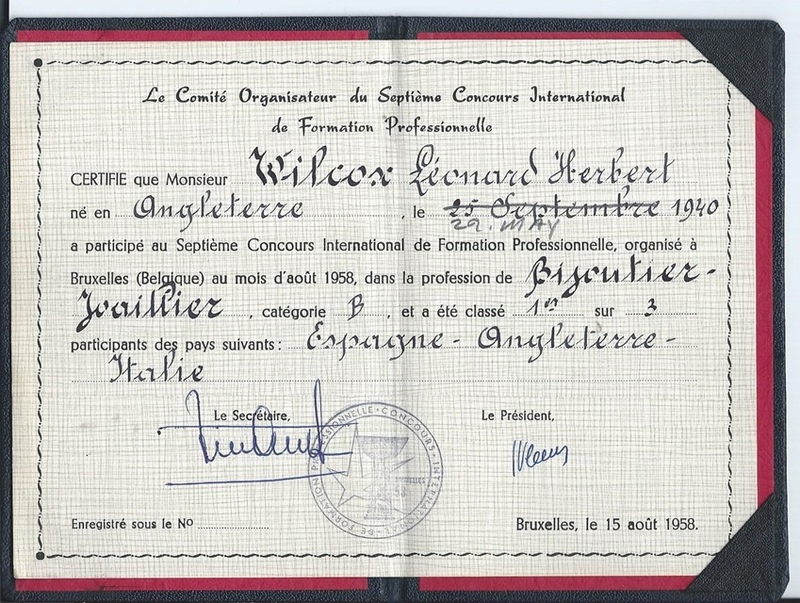 Le Comité Organisateur du Septième Concours International
de Formation Professionnelle
CERTIFIE que Monsieur Wilcox Léonard Herbert
né en Angleterre, le 25 Septembre 1940
29. MAY
a participé au Septième Concours International de Formation Professionnelle, organisé à
Bruxelles (Belgique) au mois d'août 1958, dans la profession de Bijoutier-
Joaillier, catégorie B, et a été classé 1er sur 3
participants des pays suivants: Espagne - Angleterre -
Italie
Le Secrétaire, Le Président,
CONCOURS INTERNATIONAL DE FORMATION PROFESSIONNELLE
Enregistré sous le No Bruxelles, le 15 août 1958.